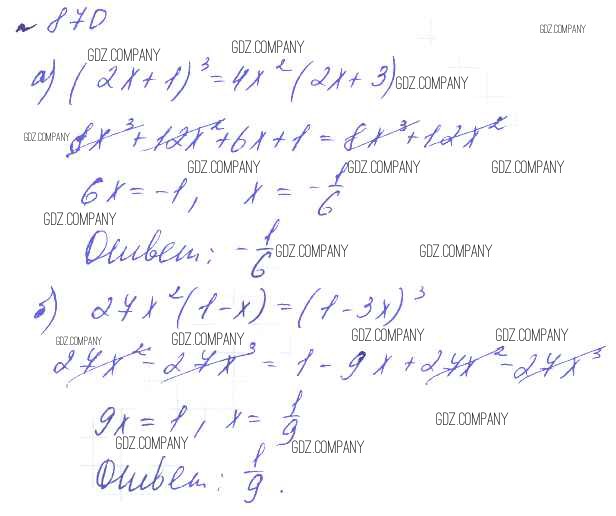 № 870
GDZ.COMPANY
GDZ.COMPANY GDZ.COMPANY
а) (2x+1)³ = 4x²(2x+3) GDZ.COMPANY
GDZ.COMPANY 8x³+12x²+6x+1 = 8x³+12x²
GDZ.COMPANY GDZ.COMPANY GDZ.COMPANY
6x = -1, x = -1/6
GDZ.COMPANY
Ответ: -1/6 GDZ.COMPANY GDZ.COMPANY
б) 27x²(1-x) = (1-3x)³
GDZ.COMPANY GDZ.COMPANY GDZ.COMPANY GDZ.COMPANY
27x² - 27x³ = 1 - 9x + 27x² - 27x³
9x = 1, x = 1/9 GDZ.COMPANY
GDZ.COMPANY GDZ.COMPANY
Ответ: 1/9.